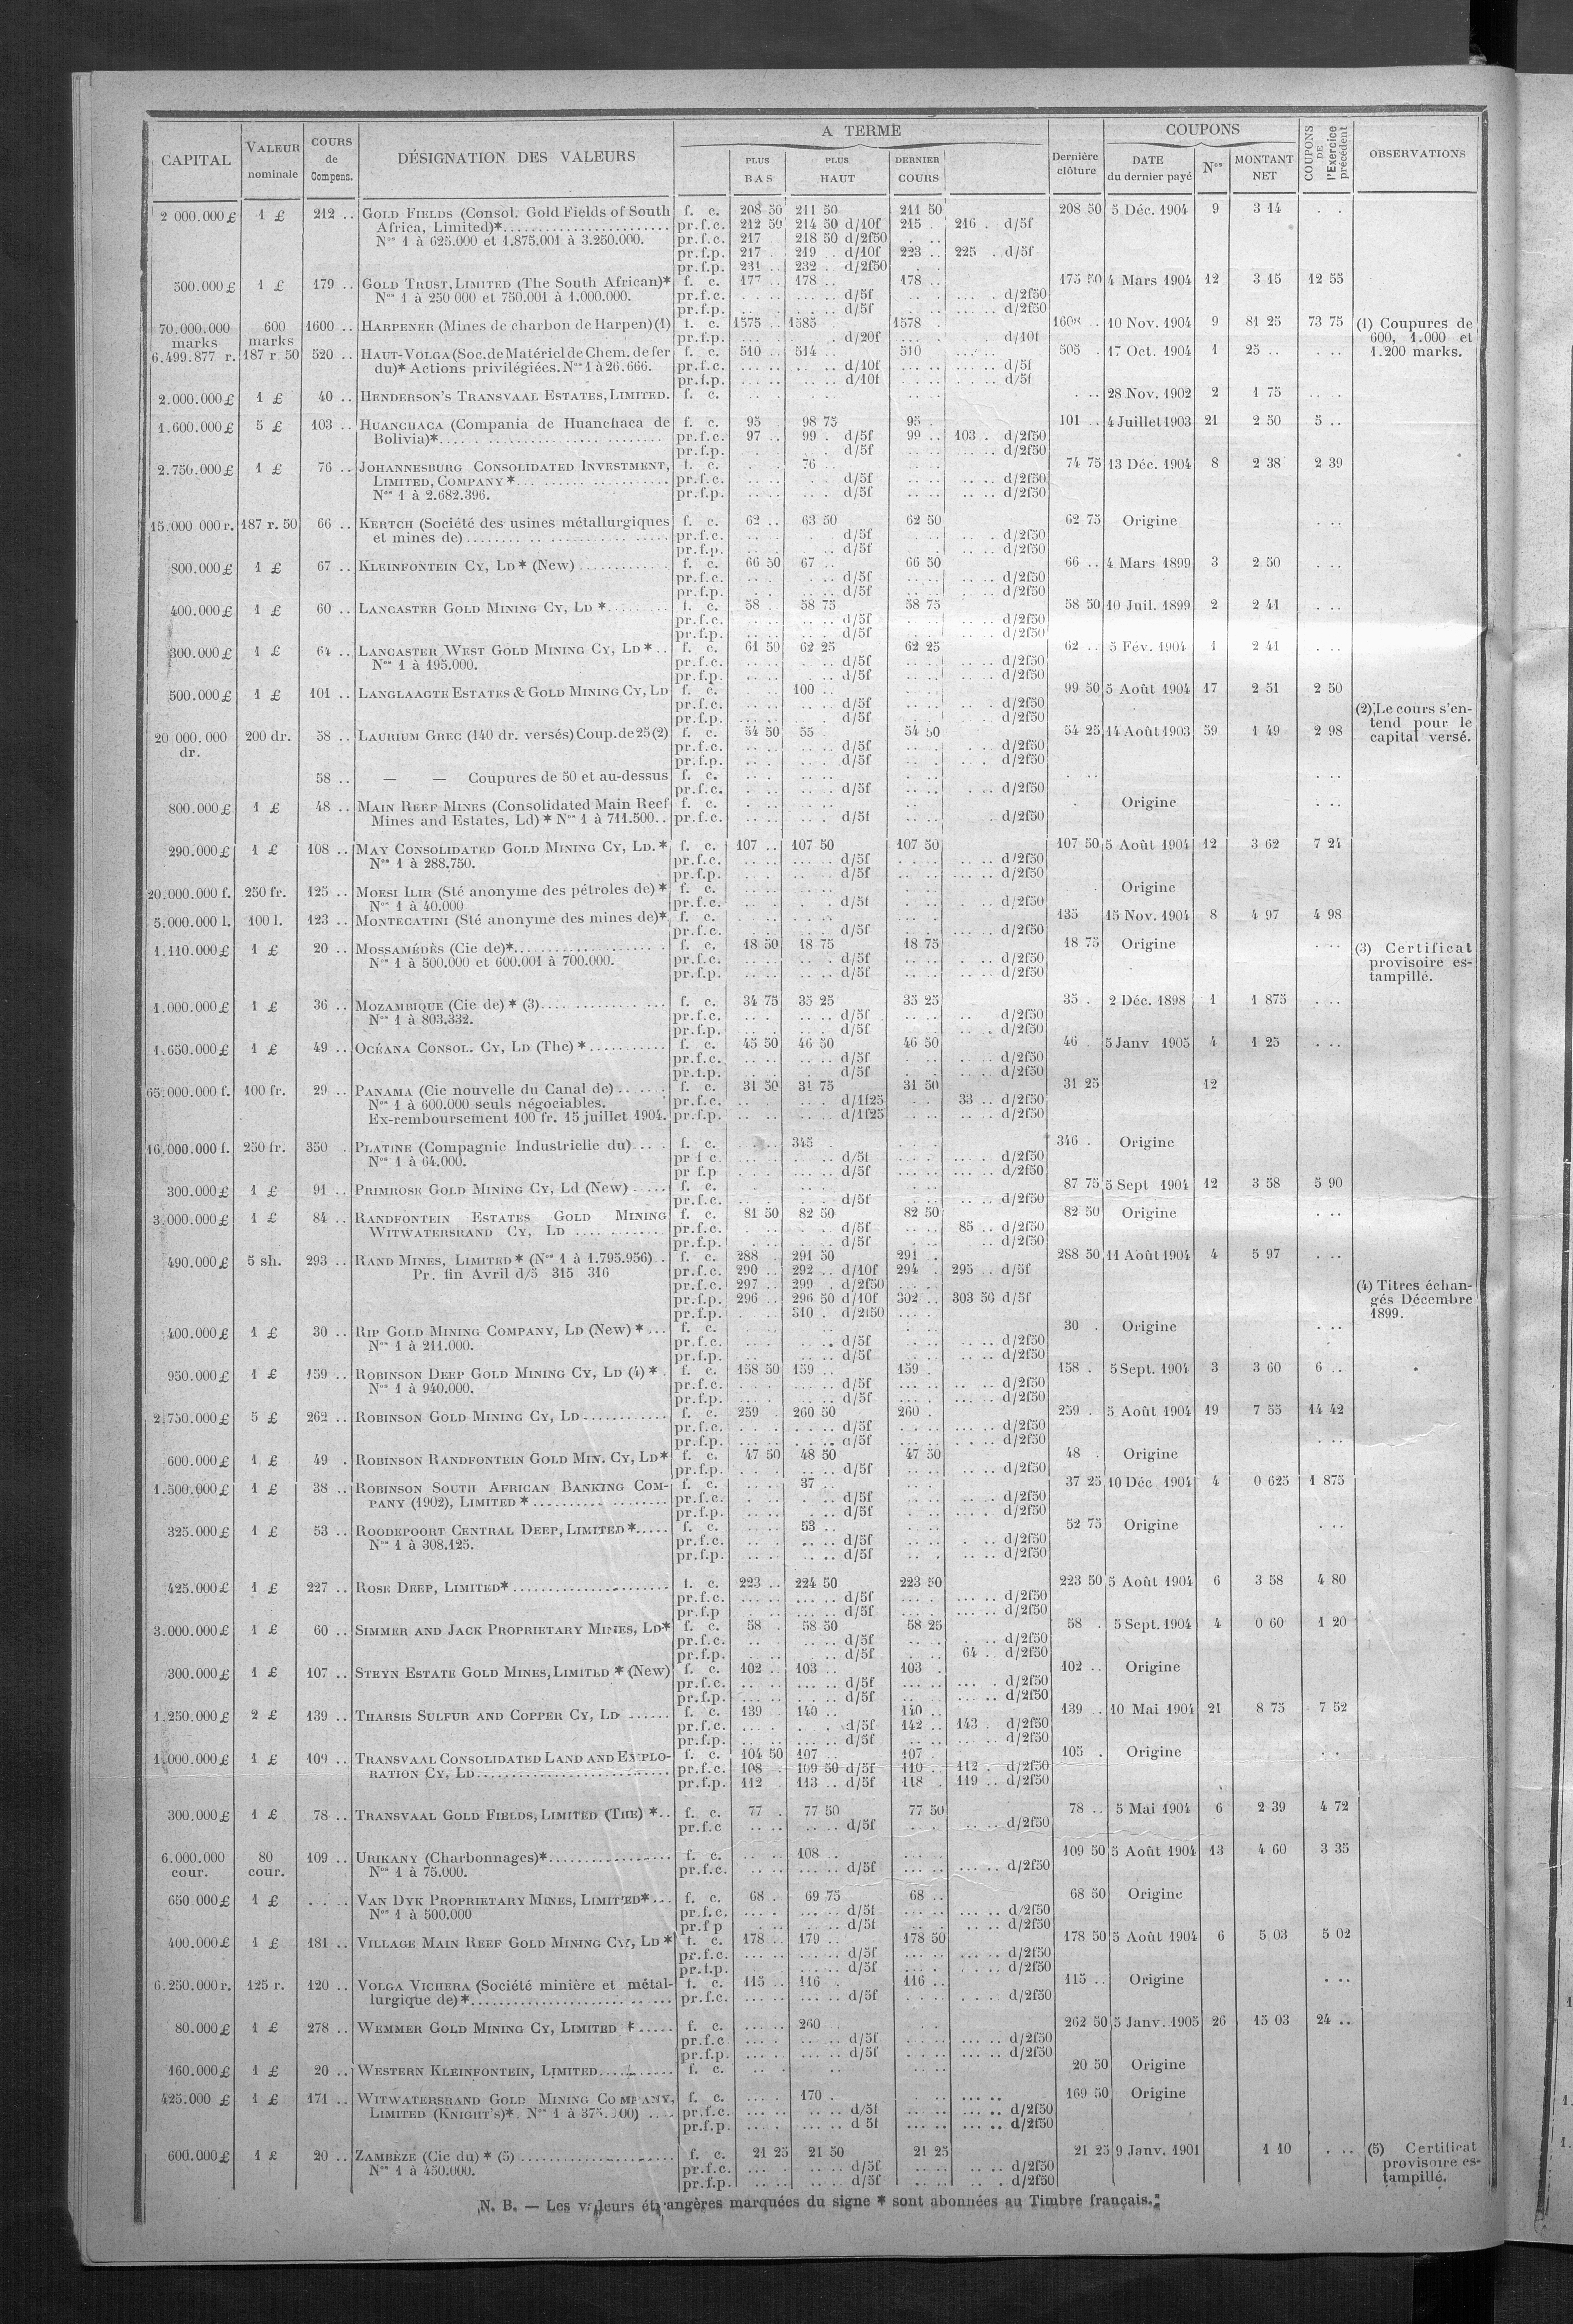 CAPITAL VALEUR nominale COURS de Compens. DÉSIGNATION DES VALEURS A TERME PLUS BAS PLUS HAUT DERNIER COURS Dernière clôture COUPONS DATE du dernier payé Nos MONTANT NET COUPONS DE l'Exercice précédent OBSERVATIONS
2 000.000£ 1 £ 212 .. GOLD FIELDS (Consol. Gold Fields of South f. c. 208 50 211 50 211 50 208 50 5 Déc. 1904 9 3 14
Africa, Limited)* pr.f.c. 212 50 214 50 d/10f 215 216 d/5f
Nos 1 à 625.000 et 1.875.001 à 3.250.000. pr.f.c. 217 218 50 d/2f50
pr.f.p. 217 219 d/10f 223 225 d/5f
pr.f.p. 231 232 d/2f50
500.000£ 1 £ 179 .. GOLD TRUST, LIMITED (The South African)* f. c. 177 178 178 175 50 4 Mars 1904 12 3 15 12 55
Nos 1 à 250 000 et 750.001 à 1.000.000. pr.f.c. d/5f d/2f50
pr.f.p. d/5f d/2f50
70.000.000 600 1600 .. HARPENER (Mines de charbon de Harpen)(1) f. c. 1575 1585 1578 1608 10 Nov. 1904 9 81 25 73 75 (1) Coupures de
marks marks pr.f.p. d/20f d/10f 600, 1.000 et
6.499.877 r. 187 r. 50 520 .. HAUT-VOLGA (Soc. de Matériel de Chem. de fer f. c. 510 514 510 505 17 Oct. 1904 1 25 .. 1.200 marks.
du)* Actions privilégiées. Nos 1 à 26.666. pr.f.c. d/10f d/5f
pr.f.p. d/10f d/5f
2.000.000£ 1 £ 40 .. HENDERSON'S TRANSVAAL ESTATES, LIMITED. f. c. 28 Nov. 1902 2 1 75
1.600.000£ 5 £ 103 .. HUANCHACA (Compania de Huanchaca de f. c. 95 98 75 95 101 4 Juillet 1903 21 2 50 5 ..
Bolivia)* pr.f.c. 97 99 d/5f 99 103 d/2f50
pr.f.p. d/5f d/2f50
2.750.000£ 1 £ 76 .. JOHANNESBURG CONSOLIDATED INVESTMENT, f. c. 76 74 75 13 Déc. 1904 8 2 38 2 39
LIMITED, COMPANY * pr.f.c. d/5f d/2f50
Nos 1 à 2.682.396. pr.f.p. d/5f d/2f50
15.000 000 r. 187 r. 50 66 .. KERTCH (Société des usines métallurgiques f. c. 62 .. 63 50 62 50 62 75 Origine
et mines de) pr.f.c. d/5f d/2f50
pr.f.p. d/5f d/2f50
800.000£ 1 £ 67 .. KLEINFONTEIN CY, LD * (New) f. c. 66 50 67 .. 66 50 66 .. 4 Mars 1899 3 2 50
pr.f.c. d/5f d/2f50
pr.f.p. d/5f d/2f50
400.000£ 1 £ 60 .. LANCASTER GOLD MINING CY, LD * f. c. 58 58 75 58 75 58 50 10 Juil. 1899 2 2 41
pr.f.c. d/5f d/2f50
pr.f.p. d/5f d/2f50
300.000£ 1 £ 64 .. LANCASTER WEST GOLD MINING CY, LD * f. c. 61 50 62 25 62 25 62 .. 5 Fév. 1904 1 2 41
Nos 1 à 195.000. pr.f.c. d/5f d/2f50
pr.f.p. d/5f d/2f50
500.000£ 1 £ 101 .. LANGLAAGTE ESTATES & GOLD MINING CY, LD f. c. 100 .. 99 50 5 Août 1904 17 2 51 2 50
pr.f.c. d/5f d/2f50
pr.f.p. d/5f d/2f50 (2) Le cours s'en-
20 000.000 200 dr. 58 .. LAURIUM GREC (140 dr. versés) Coup. de 25 (2) f. c. 54 50 55 54 50 54 25 14 Août 1903 59 1 49 2 98 tend pour le
dr. pr.f.c. d/5f d/2f50 capital versé.
pr.f.p. d/5f d/2f50
58 .. — — Coupures de 50 et au-dessus f. c.
pr.f.c. d/5f d/2f50
800.000£ 1 £ 48 .. MAIN REEF MINES (Consolidated Main Reef f. c. Origine
Mines and Estates, Ld) * Nos 1 à 711.500.. pr.f.c. d/5f d/2f50
290.000£ 1 £ 108 .. MAY CONSOLIDATED GOLD MINING CY, LD. * f. c. 107 .. 107 50 107 50 107 50 5 Août 1904 12 3 62 7 24
Nos 1 à 288.750. pr.f.c. d/5f d/2f50
pr.f.p. d/5f d/2f50
20.000.000 f. 250 fr. 125 .. MOESI ILIR (Sté anonyme des pétroles de) * f. c. Origine
Nos 1 à 40.000 pr.f.c. d/5f d/2f50
5.000.000 l. 100 l. 123 .. MONTECATINI (Sté anonyme des mines de)* f. c. 135 15 Nov. 1904 8 4 97 4 98
pr.f.c. d/5f d/2f50
1.110.000£ 1 £ 20 .. MOSSAMÉDÈS (Cie de)* f. c. 18 50 18 75 18 75 18 75 Origine (3) Certificat
Nos 1 à 500.000 et 600.001 à 700.000. pr.f.c. d/5f d/2f50 provisoire es-
pr.f.p. d/5f d/2f50 tampillé.
1.000.000£ 1 £ 36 .. MOZAMBIQUE (Cie de) * (3) f. c. 34 75 35 25 35 25 35 . 2 Déc. 1898 1 1 875
Nos 1 à 803.332. pr.f.c. d/5f d/2f50
pr.f.p. d/5f d/2f50
1.650.000£ 1 £ 49 .. OCÉANA CONSOL. CY, LD (The) * f. c. 45 50 46 50 46 50 46 5 Janv 1905 4 1 25
pr.f.c. d/5f d/2f50
pr.f.p. d/5f d/2f50
65.000.000 f. 100 fr. 29 .. PANAMA (Cie nouvelle du Canal de) f. c. 31 50 31 75 31 50 31 25 12
Nos 1 à 600.000 seuls négociables. pr.f.c. d/1f25 33 .. d/2f50
Ex-remboursement 100 fr. 15 juillet 1904. pr.f.p. d/1f25 d/2f50
16.000.000 f. 250 fr. 350 . PLATINE (Compagnie Industrielle du) f. c. 345 346 . Origine
Nos 1 à 64.000. pr f c. d/5f d/2f50
pr f.p d/5f d/2f50
300.000£ 1 £ 91 .. PRIMROSE GOLD MINING CY, Ld (New) f. c. 87 75 5 Sept 1904 12 3 58 5 90
pr.f.c. d/5f d/2f50
3.000.000£ 1 £ 84 .. RANDFONTEIN ESTATES GOLD MINING f. c. 81 50 82 50 82 50 82 50 Origine
WITWATERSRAND CY, LD pr.f.c. d/5f 85 .. d/2f50
pr.f.p. d/5f d/2f50
490.000£ 5 sh. 293 .. RAND MINES, LIMITED * (Nos 1 à 1.795.956) f. c. 288 291 50 291 288 50 11 Août 1904 4 5 97
Pr. fin Avril d/5 315 316 pr.f.c. 290 292 d/10f 294 295 d/5f
pr.f.c. 297 299 d/2f50 (4) Titres échan-
pr.f.p. 296 296 50 d/10f 302 303 50 d/5f gés Décembre
pr.f.p. 310 d/2f50 1899.
400.000£ 1 £ 30 .. RIP GOLD MINING COMPANY, LD (New) * f. c. 30 . Origine
Nos 1 à 211.000. pr.f.c. d/5f d/2f50
pr.f.p. d/5f d/2f50
950.000£ 1 £ 159 .. ROBINSON DEEP GOLD MINING CY, LD (4) * f. c. 158 50 159 159 158 . 5 Sept. 1904 3 3 60 6 ..
Nos 1 à 940.000. pr.f.c. d/5f d/2f50
pr.f.p. d/5f d/2f50
2.750.000£ 5 £ 262 .. ROBINSON GOLD MINING CY, LD f. c. 259 260 50 260 259 . 5 Août 1904 19 7 55 14 42
pr.f.c. d/5f d/2f50
pr.f.p. d/5f d/2f50
600.000£ 1 £ 49 . ROBINSON RANDFONTEIN GOLD MIN. CY, LD* f. c. 47 50 48 50 47 50 48 . Origine
pr.f.p. d/5f d/2f50
1.500.000£ 1 £ 38 .. ROBINSON SOUTH AFRICAN BANKING COM- f. c. 37 .. 37 25 10 Déc 1904 4 0 625 1 875
PANY (1902), LIMITED * pr.f.c. d/5f d/2f50
pr.f.p. d/5f d/2f50
325.000£ 1 £ 53 .. ROODEPOORT CENTRAL DEEP, LIMITED * f. c. 53 .. 52 75 Origine
Nos 1 à 308.125. pr.f.c. d/5f d/2f50
pr.f.p. d/5f d/2f50
425.000£ 1 £ 227 .. ROSE DEEP, LIMITED* f. c. 223 .. 224 50 223 50 223 50 5 Août 1904 6 3 58 4 80
pr.f.c. d/5f d/2f50
pr.f.p d/5f d/2f50
3.000.000£ 1 £ 60 .. SIMMER AND JACK PROPRIETARY MINES, LD* f. c. 58 58 50 58 25 58 . 5 Sept. 1904 4 0 60 1 20
pr.f.c. d/5f d/2f50
pr.f.p. d/5f 64 .. d/2f50
300.000£ 1 £ 107 .. STEYN ESTATE GOLD MINES, LIMITED * (New) f. c. 102 .. 103 .. 103 102 .. Origine
pr.f.c. d/5f d/2f50
pr.f.p. d/5f d/2f50
1.250.000£ 2 £ 139 .. THARSIS SULFUR AND COPPER CY, LD f. c. 139 140 .. 140 .. 139 .. 10 Mai 1904 21 8 75 7 52
pr.f.c. d/5f 142 .. 143 . d/2f50
pr.f.p. d/5f d/2f50
1.000.000£ 1 £ 109 .. TRANSVAAL CONSOLIDATED LAND AND EXPLO- f. c. 104 50 107 .. 107 105 . Origine
RATION CY, LD pr.f.c. 108 109 50 d/5f 110 112 d/2f50
pr.f.p. 112 113 .. d/5f 118 119 .. d/2f50
300.000£ 1 £ 78 .. TRANSVAAL GOLD FIELDS, LIMITED (THE) * f. c. 77 77 50 77 50 78 .. 5 Mai 1904 6 2 39 4 72
pr.f.c d/5f d/2f50
6.000.000 80 109 .. URIKANY (Charbonnages)* f. c. 108 109 50 5 Août 1904 13 4 60 3 35
cour. cour. Nos 1 à 75.000. pr.f.c. d/5f d/2f50
650 000£ 1 £ VAN DYK PROPRIETARY MINES, LIMITED* f. c. 68 69 75 68 .. 68 50 Origine
Nos 1 à 500.000 pr.f.c. d/5f d/2f50
pr.f p d/5f d/2f50
400.000£ 1 £ 181 .. VILLAGE MAIN REEF GOLD MINING CY, LD * f. c. 178 .. 179 .. 178 50 178 50 5 Août 1904 6 5 03 5 02
pr.f.c. d/5f d/2f50
pr.f.p. d/5f d/2f50
6.250.000 r. 125 r. 120 .. VOLGA VICHERA (Société minière et métal- f. c. 115 116 116 .. 115 .. Origine
lurgique de)* pr.f.c. d/5f d/2f50
80.000£ 1 £ 278 .. WEMMER GOLD MINING CY, LIMITED * f. c. 260 262 50 5 Janv. 1905 26 15 03 24 ..
pr.f.c d/5f d/2f50
pr.f.p. d/5f d/2f50
160.000£ 1 £ 20 .. WESTERN KLEINFONTEIN, LIMITED f. c. 20 50 Origine
425.000 £ 1 £ 171 .. WITWATERSRAND GOLD MINING COMPANY, f. c. 170 . 169 50 Origine
LIMITED (KNIGHT'S)*. Nos 1 à pr.f.c. d/5f d/2f50
pr.f.p. d 5f d/2f50
600.000£ 1 £ 20 .. ZAMBÈZE (Cie du) * (5) f. c. 21 25 21 50 21 25 21 25 9 Janv. 1901 1 10 (5) Certificat
Nos 1 à 450.000. pr.f.c. d/5f d/2f50 provisoire es-
pr.f.p. d/5f d/2f50 tampillé.
N. B. — Les valeurs étrangères marquées du signe * sont abonnées au Timbre français.